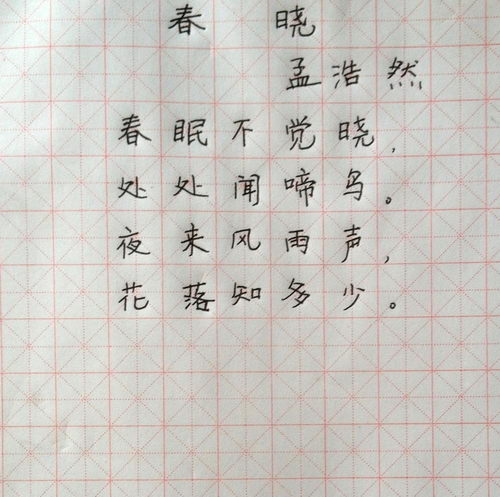 春 晓
孟浩然
春眠不觉晓,
处处闻啼鸟。
夜来风雨声,
花落知多少。